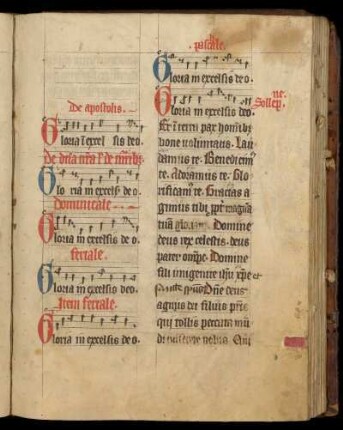 De apostolis.
Gloria ī excel sis deo.
De dñā nr̄a ł de mr̄ibȝ
Glo ria in excelsꝭ de o.
dominicale.
Gloria in excelsis de o.
feriale.
Gloria in excelsis deo.
Item feriale.
Gloria in excelsis de o.
pascale.
Gloria in excelsis de o.
ne.
Gloria in excelsis de o. Sollep̄
Et ī terra pax homībȝ
bone voluntatis. Lau
damus te. Benedicim
te. Adoramus te. Glo
rificam te. Gracias a
gimus tibi ꝓpt̄ magnā
tuā gloriam. Domine
deus rex celestis. deus
pater omp̄s. Domine
fili unigenite ihū xp̄e
Dn̄e deus
agnus dei filius pr̄is
qui tollis peccata mū
di miserere nobis. Qui